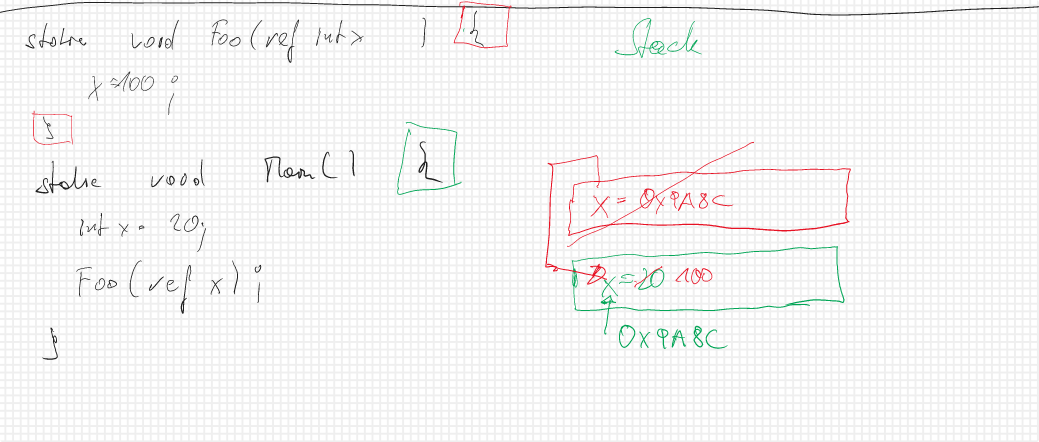 static void Foo(ref int x ) {
x=100 ;
}
static void Main() {
int x = 20;
Foo(ref x) ;
}
Stack
x = 0x9A8C
x = 20 100
0x9A8C